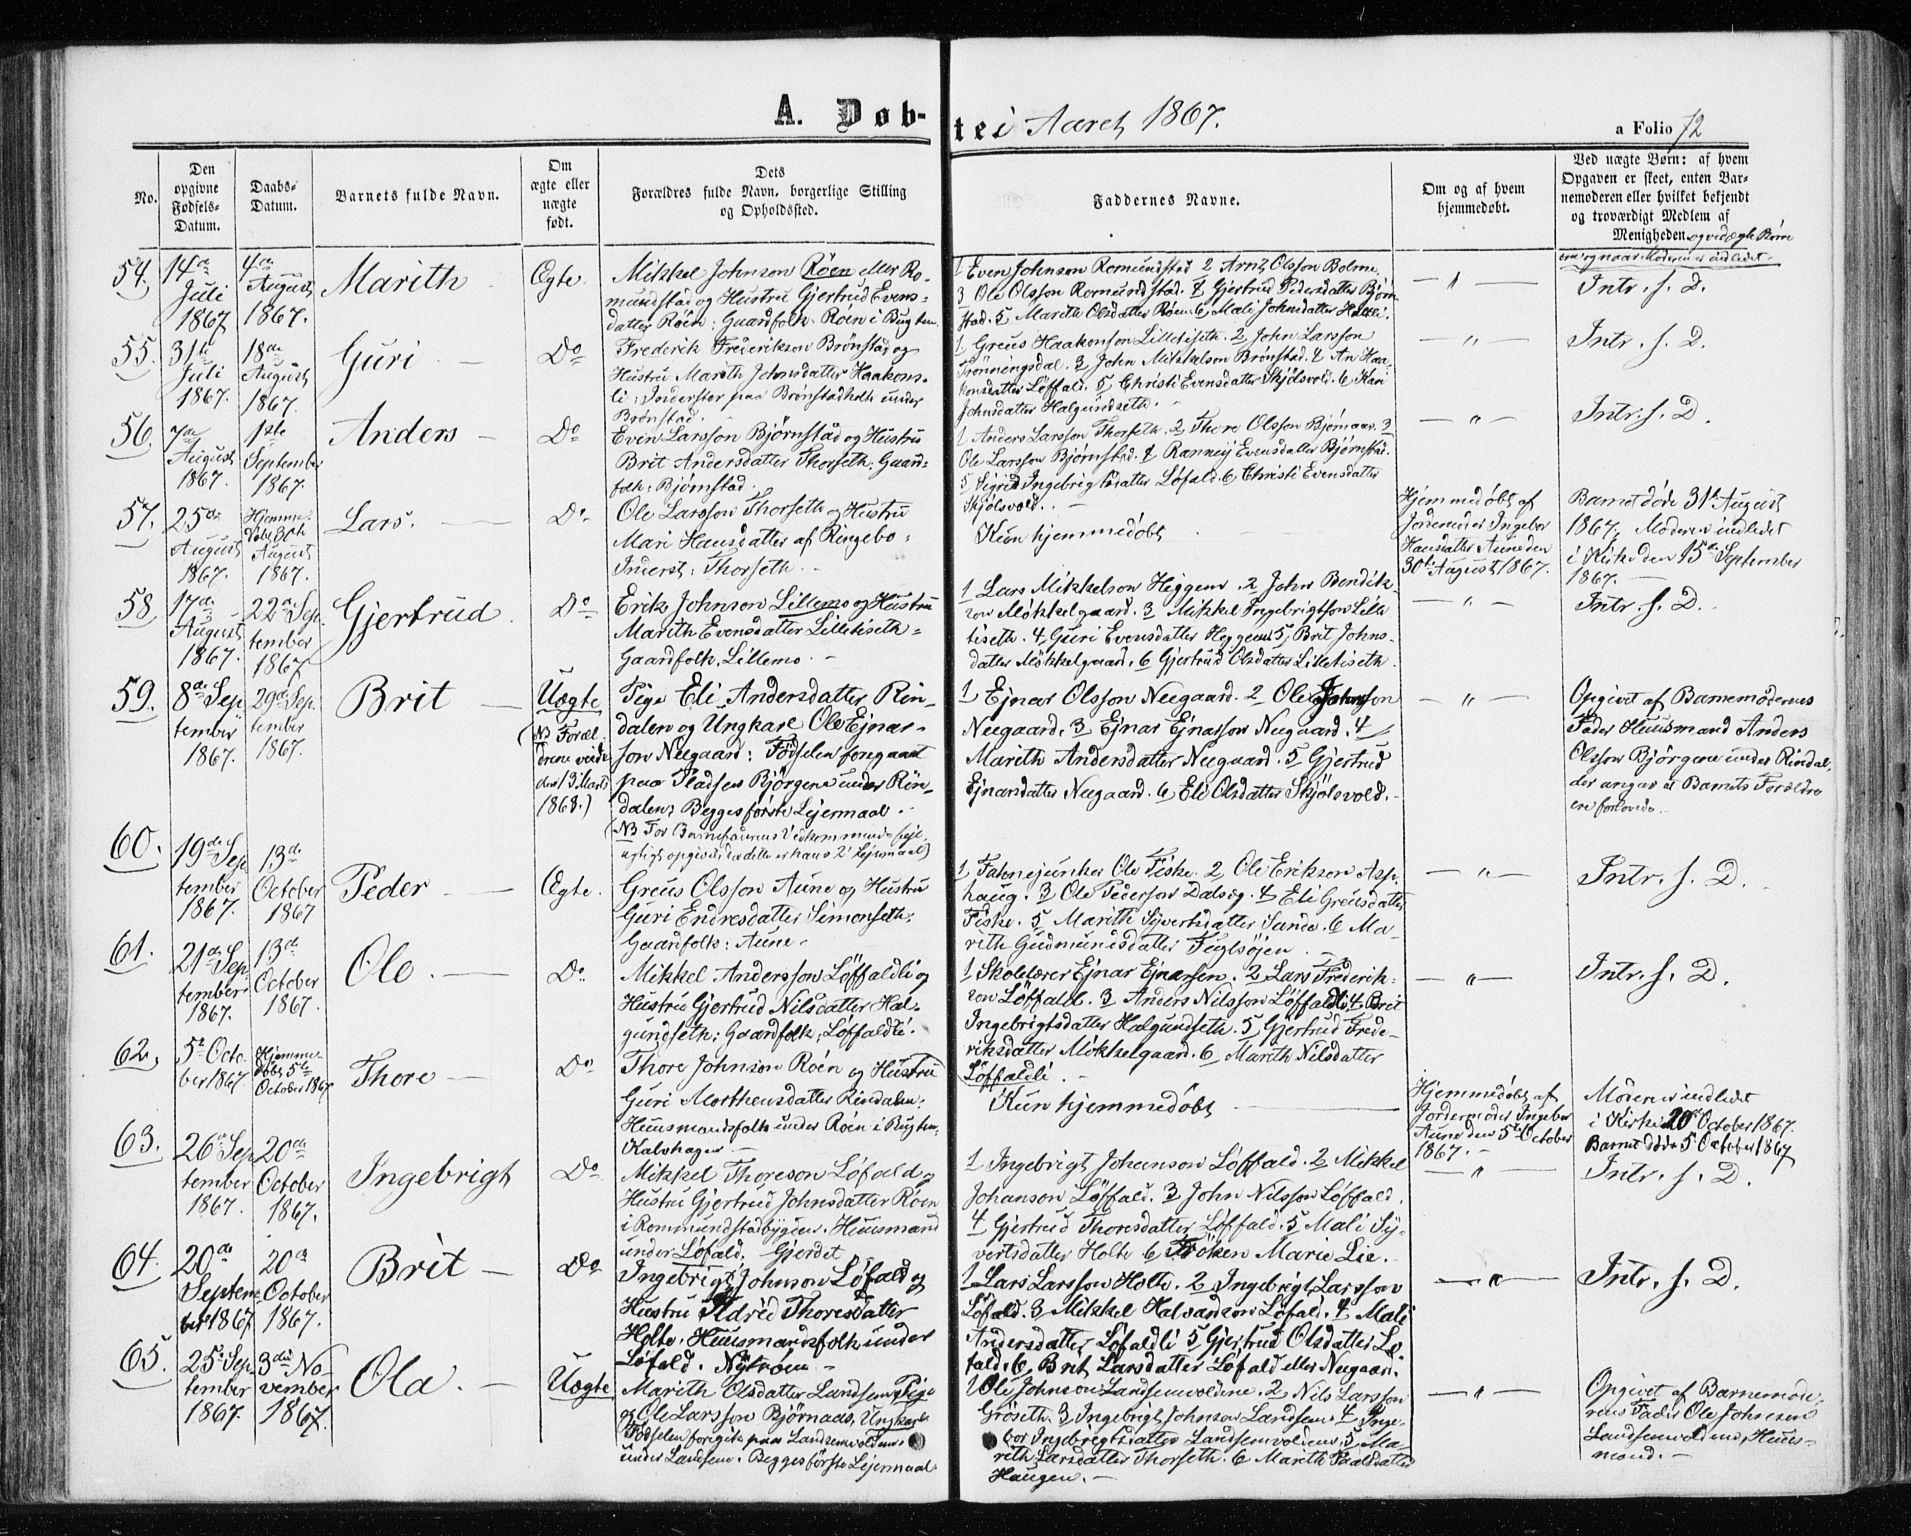 A. Døb-
te i Aaret 1867.
a Folio 72
No.
Den
opgivne
Fødsels-
Datum.
Daabs-
Datum.
Barnets fulde Navn.
Om
ægte eller
uægte
født.
Dets
Forældres fulde Navn, borgerlige Stilling
og Opholdssted.
Faddernes Navne.
Om og af hvem
hjemmedøbt.
Ved uægte Børn: af hvem
Opgaven er skeet, enten Bar-
nemoderen eller hvilket bekjendt
og troværdigt Medlem af
Menigheden og ved ægte Børn
om og naar Moderen er indledet.
54.
14de
Juli
1867
4de
August
1867.
Marith
Ægte.
Mikkel Johnson Røen eller Ro-
mundstad og Hustru Gjertrud Evens-
datter Røen: Gaardfolk. Røen i Bugten.
1 Even Johnson Romundstad 2 Arnt Olsson Bolme.
3 Ole Olsson Romundstad. 4 Gjertrud Pedersdatter Bjørn-
stad. 5 Marith Olsdatter Røen. 6 Mali Johnsdatter
— " —
Intr. s. D.
55.
31te
Juli
1867.
18de
August
1867.
Guri —
Do
Frederik Frederikson Brønstad og
Hustru Marith Johnsdatter Haakons-
li: Inderster paa Brønstadholte under
Brønstad.
1 Greus Haakonson Lilletiseth. 2 John Larsson
Trønningsdal. 3 John Mikkelson Brønstad. 4 An Haa-
konsdatter Løffald. 5 Christi Evensdatter Skjølsvold. 6 Kari
Johnsdatter Halgundseth.
— " —
Intr. s. D.
56.
7de
August
1867.
1ste
September
1867.
Anders —
Do
Even Larsson Bjørnstad og Hustru
Brit Andersdatter Thorseth: Gaard-
folk: Bjørnstad.
1 Anders Larsson Thorseth. 2 Thore Olsson Bjørnaas. 3
Ole Larsson Bjørnstad. 4 Rannei Evensdatter Bjørnstad.
5 Sigrid Ingebrigtsdatter Løfald. 6 Christi Evensdatter
Skjølsvold.
— " —
Intr. s. D.
57.
25de
August
1867.
Hjemme-
døbt 30te
August
1867.
Lars. —
Do
Ole Larsson Thorseth og Hustru
Mari Hansdatter af Ringebo.
Inderst: Thorseth.
Kun hjemmedøbt
Hjemmedøbt af
Jordemoder Ingebor
Hansdatter Aune den
30te August 1867.
Barnet døde 31te August
1867. Moderen indledet
i Kirke den 15de September
1867.
58.
17de
August
1867.
22de Sep-
tember
1867
Gjertrud.
Do
Erik Johnson Lillemo og Hustru
Marith Evensdatter Lilletiseth =
Gaardfolk, Lillemo.
1 Lars Mikkelson Heggem. 2 John Bendik-
son Møkkelgaard. 3 Mikkel Ingebrigtson Lille-
tiseth. 4 Guri Evensdatter Heggem. 5 Brit Johns-
datter Møkkelgaard. 6 Gjertrud Olsdatter Lilletiseth.
— " —
Intr. s. D.
59.
8de Sep-
tember
1867.
29de Sep-
tember
1867.
Brit —
Uægte
(NB Foræl-
drene viede
den 19 Marts
1868.)
Pige Eli Andersdatter Rin-
dalen og Ungkarl Ole Ejnar-
son Neegaard: Fødselen foregaaet
paa Pladsen Bjørgene under Rin-
dalen, Begges første Lejermaal.
(NB For Barnefaderens Vedkommende fejl-
agtigt opgivet, da dette er hans 2det Lejermaal)
1 Ejnar Olsson Neegaard. 2 Ole Johnson
Neegaard. 3 Ejnar Ejnarson Neegaard. 4
Marith Andersdatter Neegaard. 5 Gjertrud
Ejnarsdatter Neegaard. 6 Eli Olsdatter Skjølsvold.
— " —
Opgivet af Barnemoderens
Fader Huusmand Anders
Olsson Bjørgene under Rindal,
der angav at Barnets Forældre
ere forlovede.
60.
19de Sep-
tember
1867.
13de
October
1867
Peder —
Ægte.
Greus Olsson Aune og Hustru
Guri Endresdatter Simonseth:
Gaardfolk: Aune.
1 Fanejunker Ole Fiske. 2 Ole Erikson Asp-
haug. 3 Ole Pederson Dalseg. 4 Eli Greusdatter
Fiske. 5 Marith Sivertsdatter Sande. 6 Ma-
rith Gudmundsdatter Fuglsøien —
— " —
Intr. s. D.
61.
21de Sep-
tember
1867.
13de
October
1867.
Ole. —
Do.
Mikkel Andersson Løffaldli og
Hustru Gjertrud Nilsdatter Hal-
gundseth: Gaardfolk, Løffaldli.
1 Skolelærer Ejnar Ejnarsen. 2 Lars Frederik-
son Løffaldl. 3 Anders Nilsson Løffaldli 4 Brit
Ingebrigtsdatter Halgundseth. 5 Gjertrud Frede-
riksdatter Møkkelgaard. 6 Marith Nilsdatter
Løffaldli.
— " —
Intr. s. D.
62.
5te Octo-
ber 1867
Hjemme-
døbt 5te
October 1867
Thore —
Do.
Thore Johnson Røen og Hustru
Guri Morthensdatter Rindalen,
Huusmandsfolk under Røen i Bugten,
Kalvhagen —
Kun hjemmedøbt
Hjemmedøbt af
Jordemoder Ingebor
Aune den 5te October
1867.
Moderen indledet
i Kirke 20de October 1867.
Barnet døde 5 October 1867
63.
26de Sep-
tember
1867.
20de
October
1867.
Ingebrigt
Do
Mikkel Thoreson Løfald og
Hustru Gjertrud Johnsdatter Røen
i Rommundstadbygden. Huusmand
under Løfald. Gjerdet
1 Ingebrigt Johanson Løffald. 2 Mikkel
Johanson Løffald. 3 John Nilsson Løffald.
4 Gjertrud Thoresdatter Løffald. 5 Mali Sy-
vertsdatter Holte 6 Frøken Marie Lie.
— " —
Intr. s. D.
64.
20de
Septem-
ber 1867
20de
October
1867.
Brit —
Do
Ingebrigt Johnson Løfald og
Hustru Thoresdatter
Holte. Huusmandsfolk under
Løfald. Nystuen —
1 Lars Larsson Holte. 2 Ingebrigt Larsson
Løfald. 3 Mikkel Halvardson Løfald. 4 Mali
Andersdatter Løfaldli 5 Gjertrud Olsdatter Lø-
fald. 6 Brit Larsdatter Løfald eller Neegaard.
— " —
Intr. s. D.
65.
25de Sep-
tember
1867.
3die No-
vember
1867.
Ola. —
Uægte
Marith Olsdatter Landsem Pige
og Ole Larsson Bjørnaas, Ungkarl.
Fødselen foregik paa Landsemvoldene
under Landsem. Begges første Lejermaal.
1 Ole Johnson Landsemvoldene. 2 Nils Larsson
Grøseth. 3 Ingebrigt Johnson Landsem. 4 Inge-
bor Ingebrigtsdatter Landsemvolden. 5 Ma-
rith Larsdatter Thorseth. 6 Marith Paalsdatter
Haugen. —
— " —
Opgivet af Barnemode-
rens Fader Ole Johnsen
Landsemvoldene, Huus-
mand. —